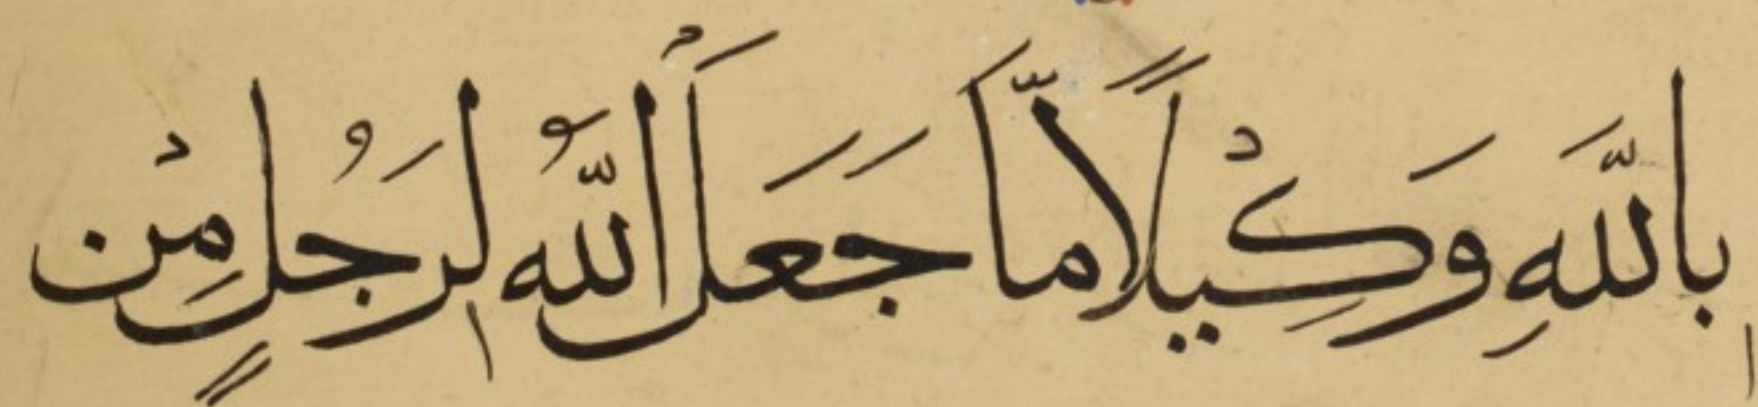 بِاللَّهِ وَكِيْلًا مَّا جَعَلَ اللَّهُ لِرَجُلٍ مِنْ